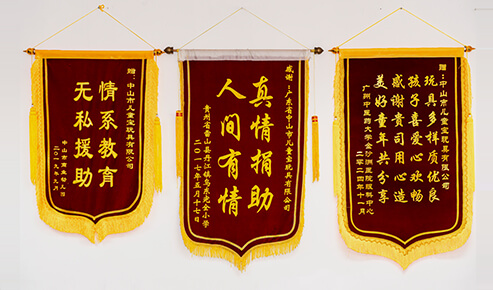 赠：中山市儿童宝玩具有限公司
情系教育
无私援助
中山市商业幼儿园
二〇一九年九月
感谢：广东省中山市儿童宝玩具有限公司
真情捐助
人间有情
贵州省雷山县丹江镇乌东完全小学
二〇一七年五月十七日
赠：中山市儿童宝玩具有限公司
玩具多样质优良
孩子喜爱心欢畅
感谢贵司用心造
美好童年共分享
广州中医药大学金沙洲医院眼科中心
二零二四年十一月